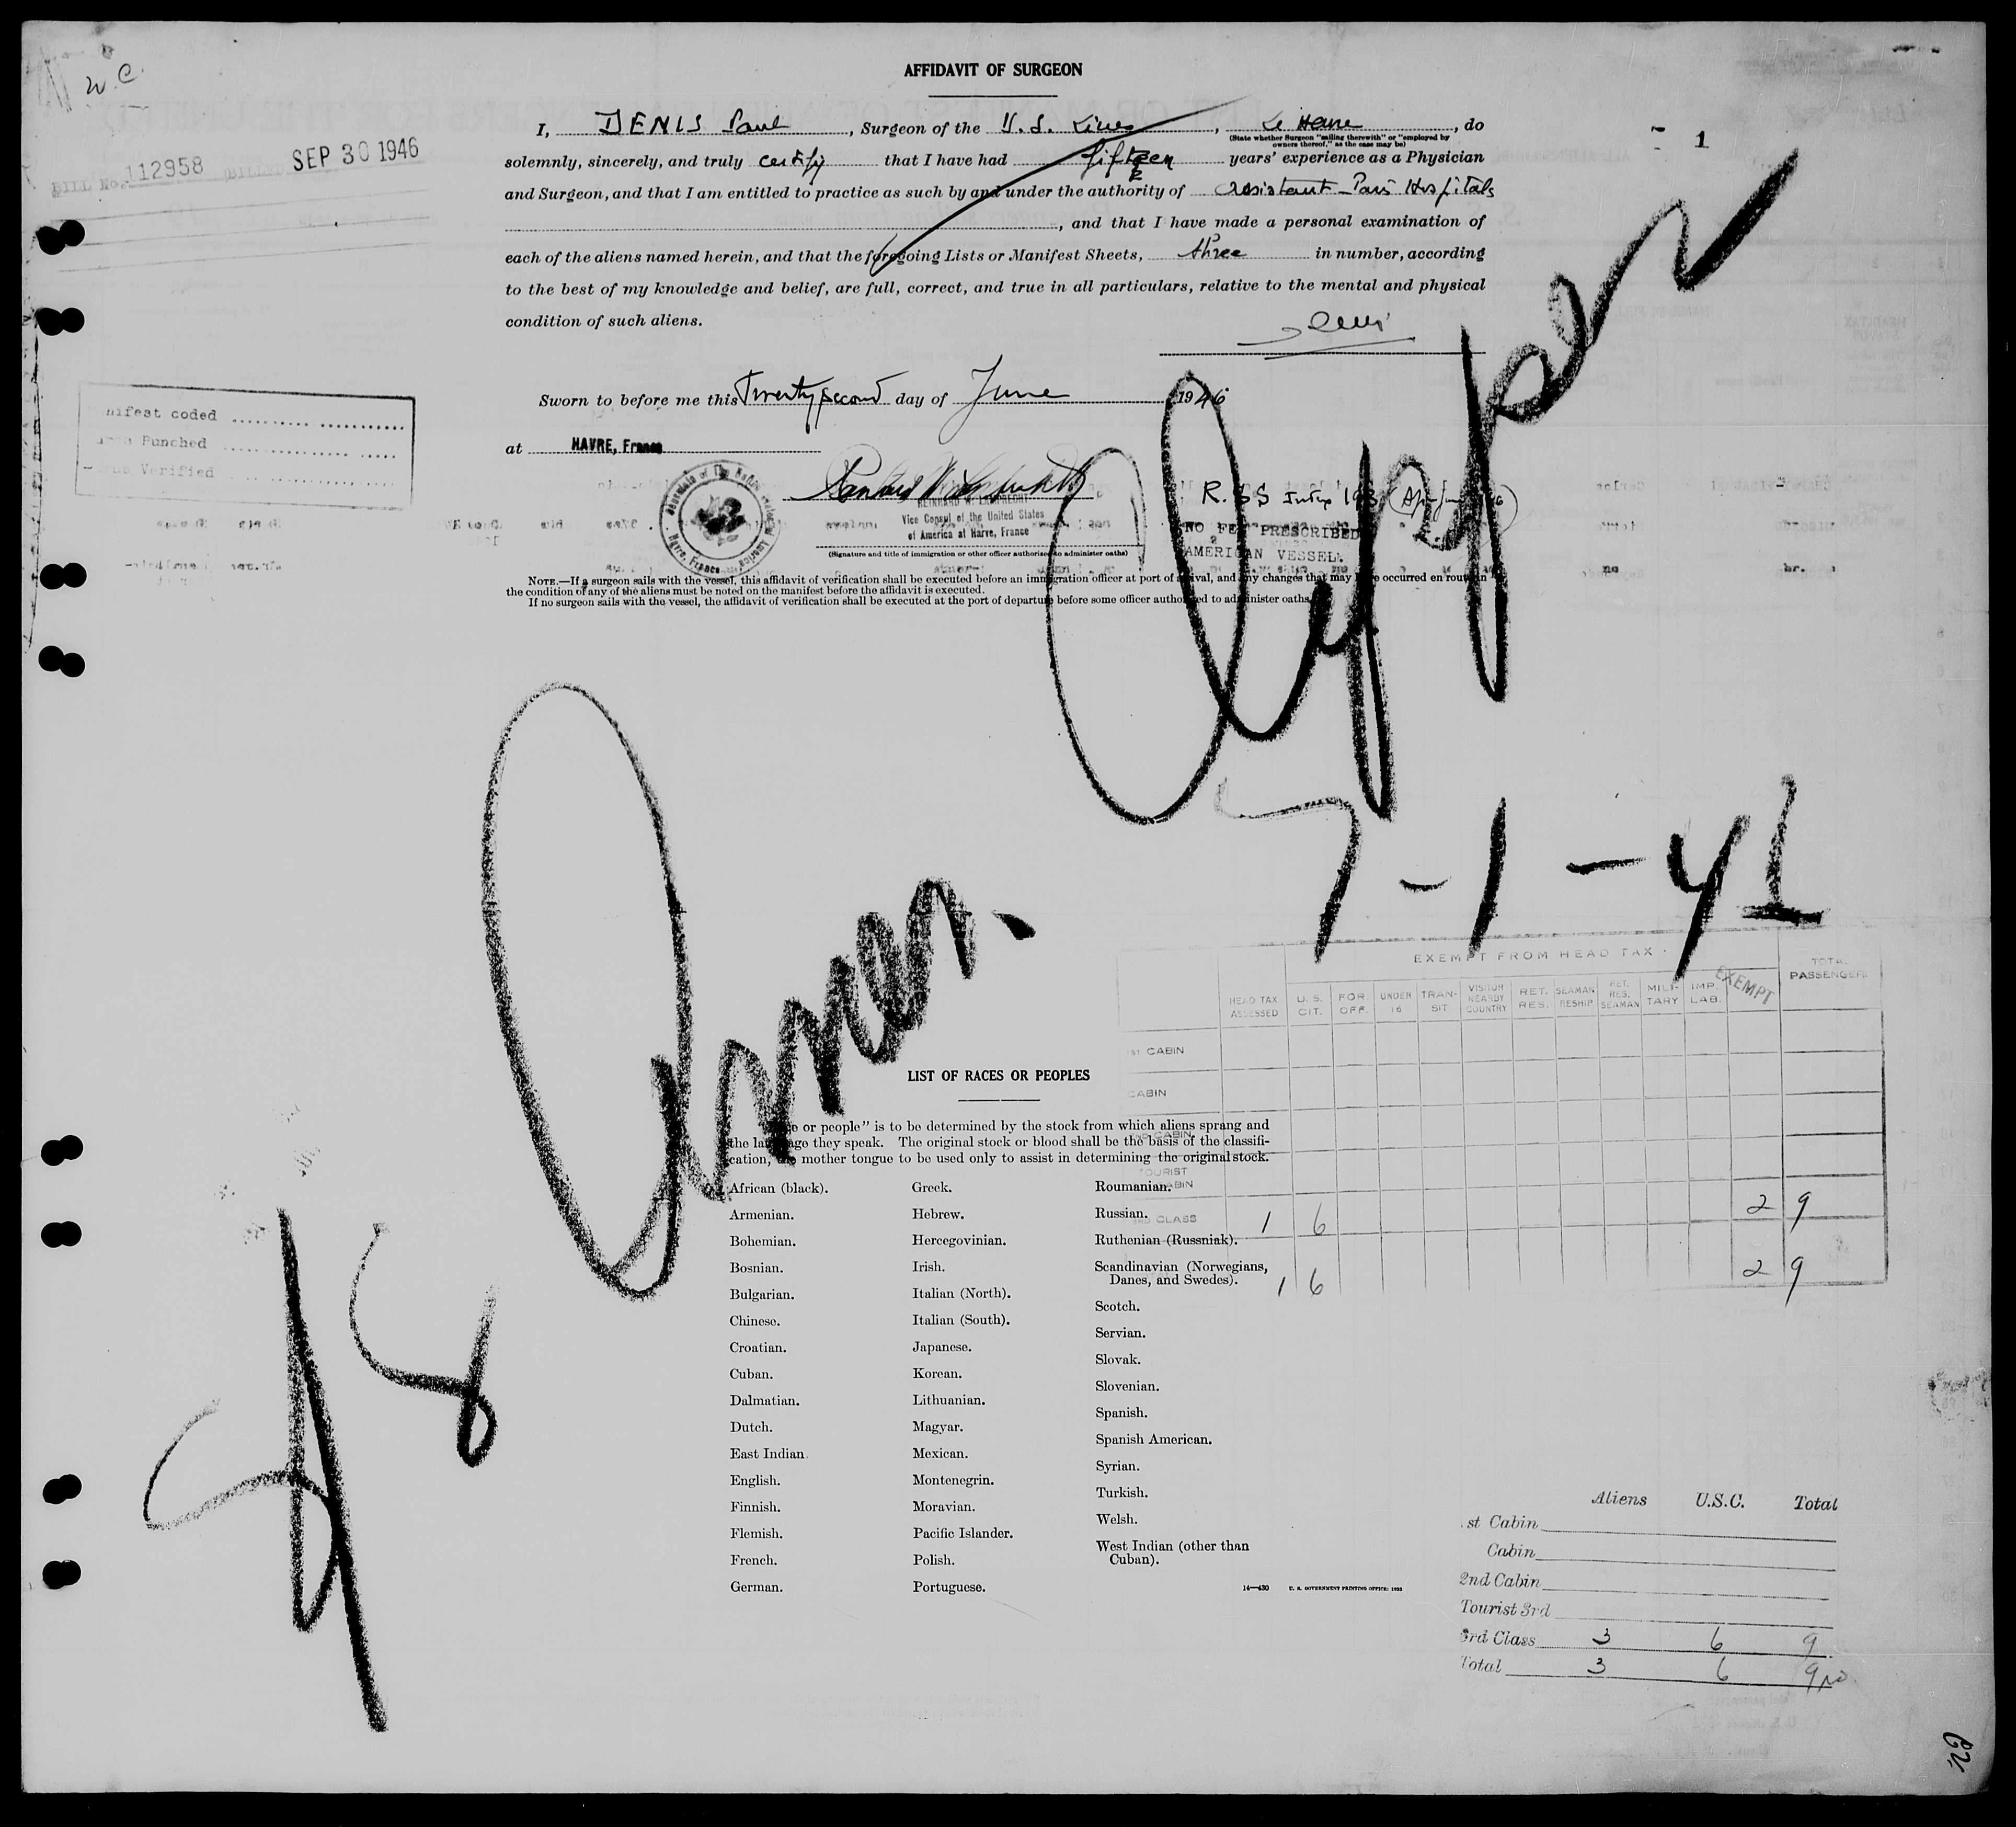 W.C.
AFFIDAVIT OF SURGEON
I, DENIS Paul, Surgeon of the U.S. Lines, Le Havre, do
(State whether Surgeon "sailing therewith" or "employed by
owners thereof," as the case may be)
- 1
BILL No. 112958 BILLED SEP 30 1946
solemnly, sincerely, and truly certify that I have had fifteen years' experience as a Physician
and Surgeon, and that I am entitled to practice as such by and under the authority of assistant - Paris Hospitals
, and that I have made a personal examination of
each of the aliens named herein, and that the foregoing Lists or Manifest Sheets, three in number, according
to the best of my knowledge and belief, are full, correct, and true in all particulars, relative to the mental and physical
condition of such aliens.
Denis
Sworn to before me this Twenty second day of June 1946
at HAVRE, France
nifest coded
Punched
Verified
Vice Consul of the United States
of America at Havre, France
(Signature and title of immigration or other officer authorized to administer oaths)
NO FEE PRESCRIBED
AMERICAN VESSEL.
NOTE.—If a surgeon sails with the vessel, this affidavit of verification shall be executed before an immigration officer at port of arrival, and any changes that may have occurred en route in
the condition of any of the aliens must be noted on the manifest before the affidavit is executed.
If no surgeon sails with the vessel, the affidavit of verification shall be executed at the port of departure before some officer authorized to administer oaths.
SS Amer. Clipper
7-1-41
EXEMPT FROM HEAD TAX
HEAD TAX ASSESSED
U. S. CIT.
FOR. OFF.
UNDER 16
TRAN- SIT
VISITOR NEARBY COUNTRY
RET. RES.
SEAMAN RESHIP.
RET. RES. SEAMAN
MILI- TARY
IMP. LAB.
EXEMPT
TOTAL PASSENGERS
1st CABIN
CABIN
2nd CABIN
TOURIST CABIN
3RD CLASS 1 6 2 9
1 6 2 9
LIST OF RACES OR PEOPLES
or people" is to be determined by the stock from which aliens sprang and
the language they speak. The original stock or blood shall be the basis of the classifi-
cation, the mother tongue to be used only to assist in determining the original stock.
African (black).
Armenian.
Bohemian.
Bosnian.
Bulgarian.
Chinese.
Croatian.
Cuban.
Dalmatian.
Dutch.
East Indian.
English.
Finnish.
Flemish.
French.
German.
Greek.
Hebrew.
Hercegovinian.
Irish.
Italian (North).
Italian (South).
Japanese.
Korean.
Lithuanian.
Magyar.
Mexican.
Montenegrin.
Moravian.
Pacific Islander.
Polish.
Portuguese.
Roumanian.
Russian.
Ruthenian (Russniak).
Scandinavian (Norwegians,
Danes, and Swedes).
Scotch.
Servian.
Slovak.
Slovenian.
Spanish.
Spanish American.
Syrian.
Turkish.
Welsh.
West Indian (other than
Cuban).
14—430 U. S. GOVERNMENT PRINTING OFFICE: 1935
Aliens U.S.C. Total
st Cabin
Cabin
2nd Cabin
Tourist 3rd
3rd Class 3 6 9
Total 3 6 9